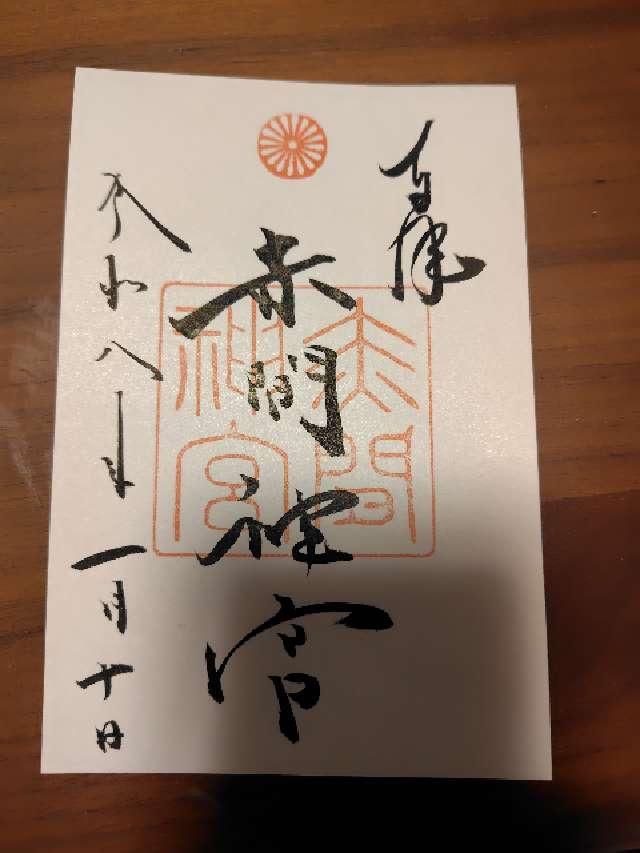 奉拝
赤間神宮
赤間神宮
令和八年一月十日